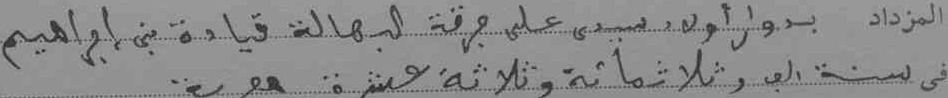 المزداد بدوار أولاد سيدي علي فرقة البهالة قيادة بني إبراهيم
في سنة الف وثلاثمائة وثلاثة عشرة هجرية